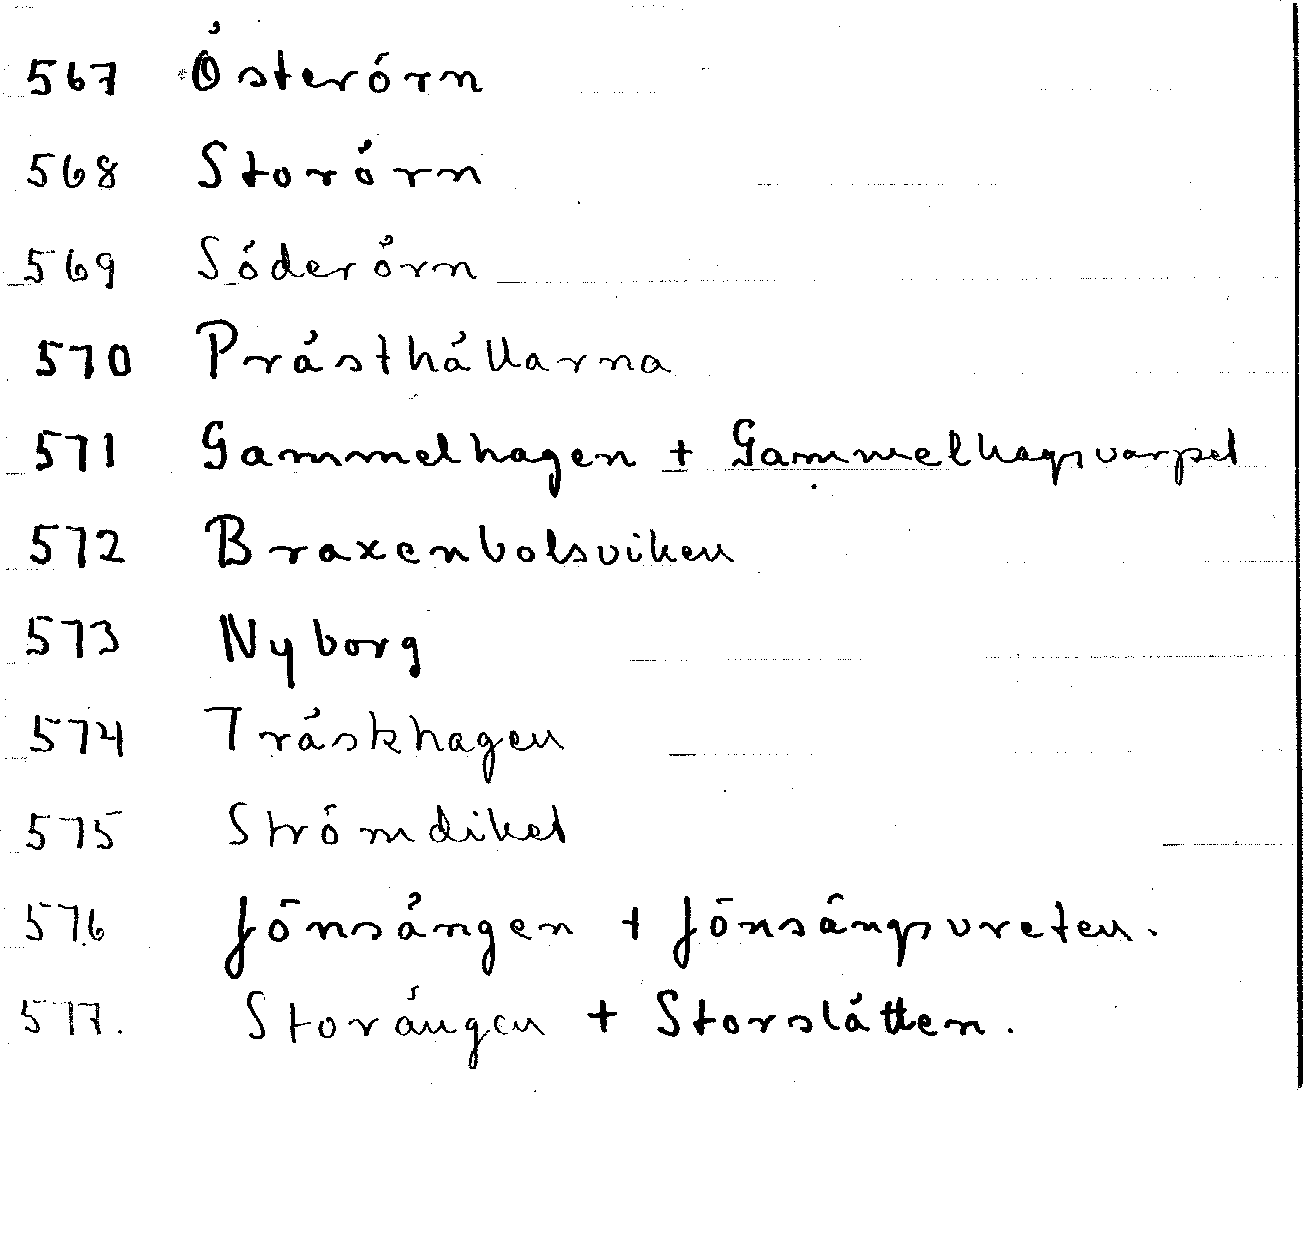 567 Österörn
568 Storörn
569 Söderörn
570 Prästhällarna
571 Gammelhagen + Gammelhagsvarpet
572 Braxenbolsviken
573 Nyborg
574 Träskhagen
575 Strömdiket
576 Jönsängen + Jönsängsvreten.
577. Storängen + Storslätten.